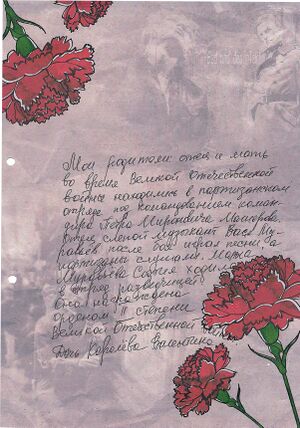 Мои родители отец и мать
во время Великой Отечественной
войны находились в партизанском
отряде под командованием коман-
дира Петра Мироновича Машерова.
Отец слепой музыкант Вася Му-
равьёв после боя играл песни, а
партизаны слушали. Мать
Муравьёва София ходила
в отряд разведчицей
Она награждена
орденом II степени
Великой Отечественной
Дочь Королёва Валентина